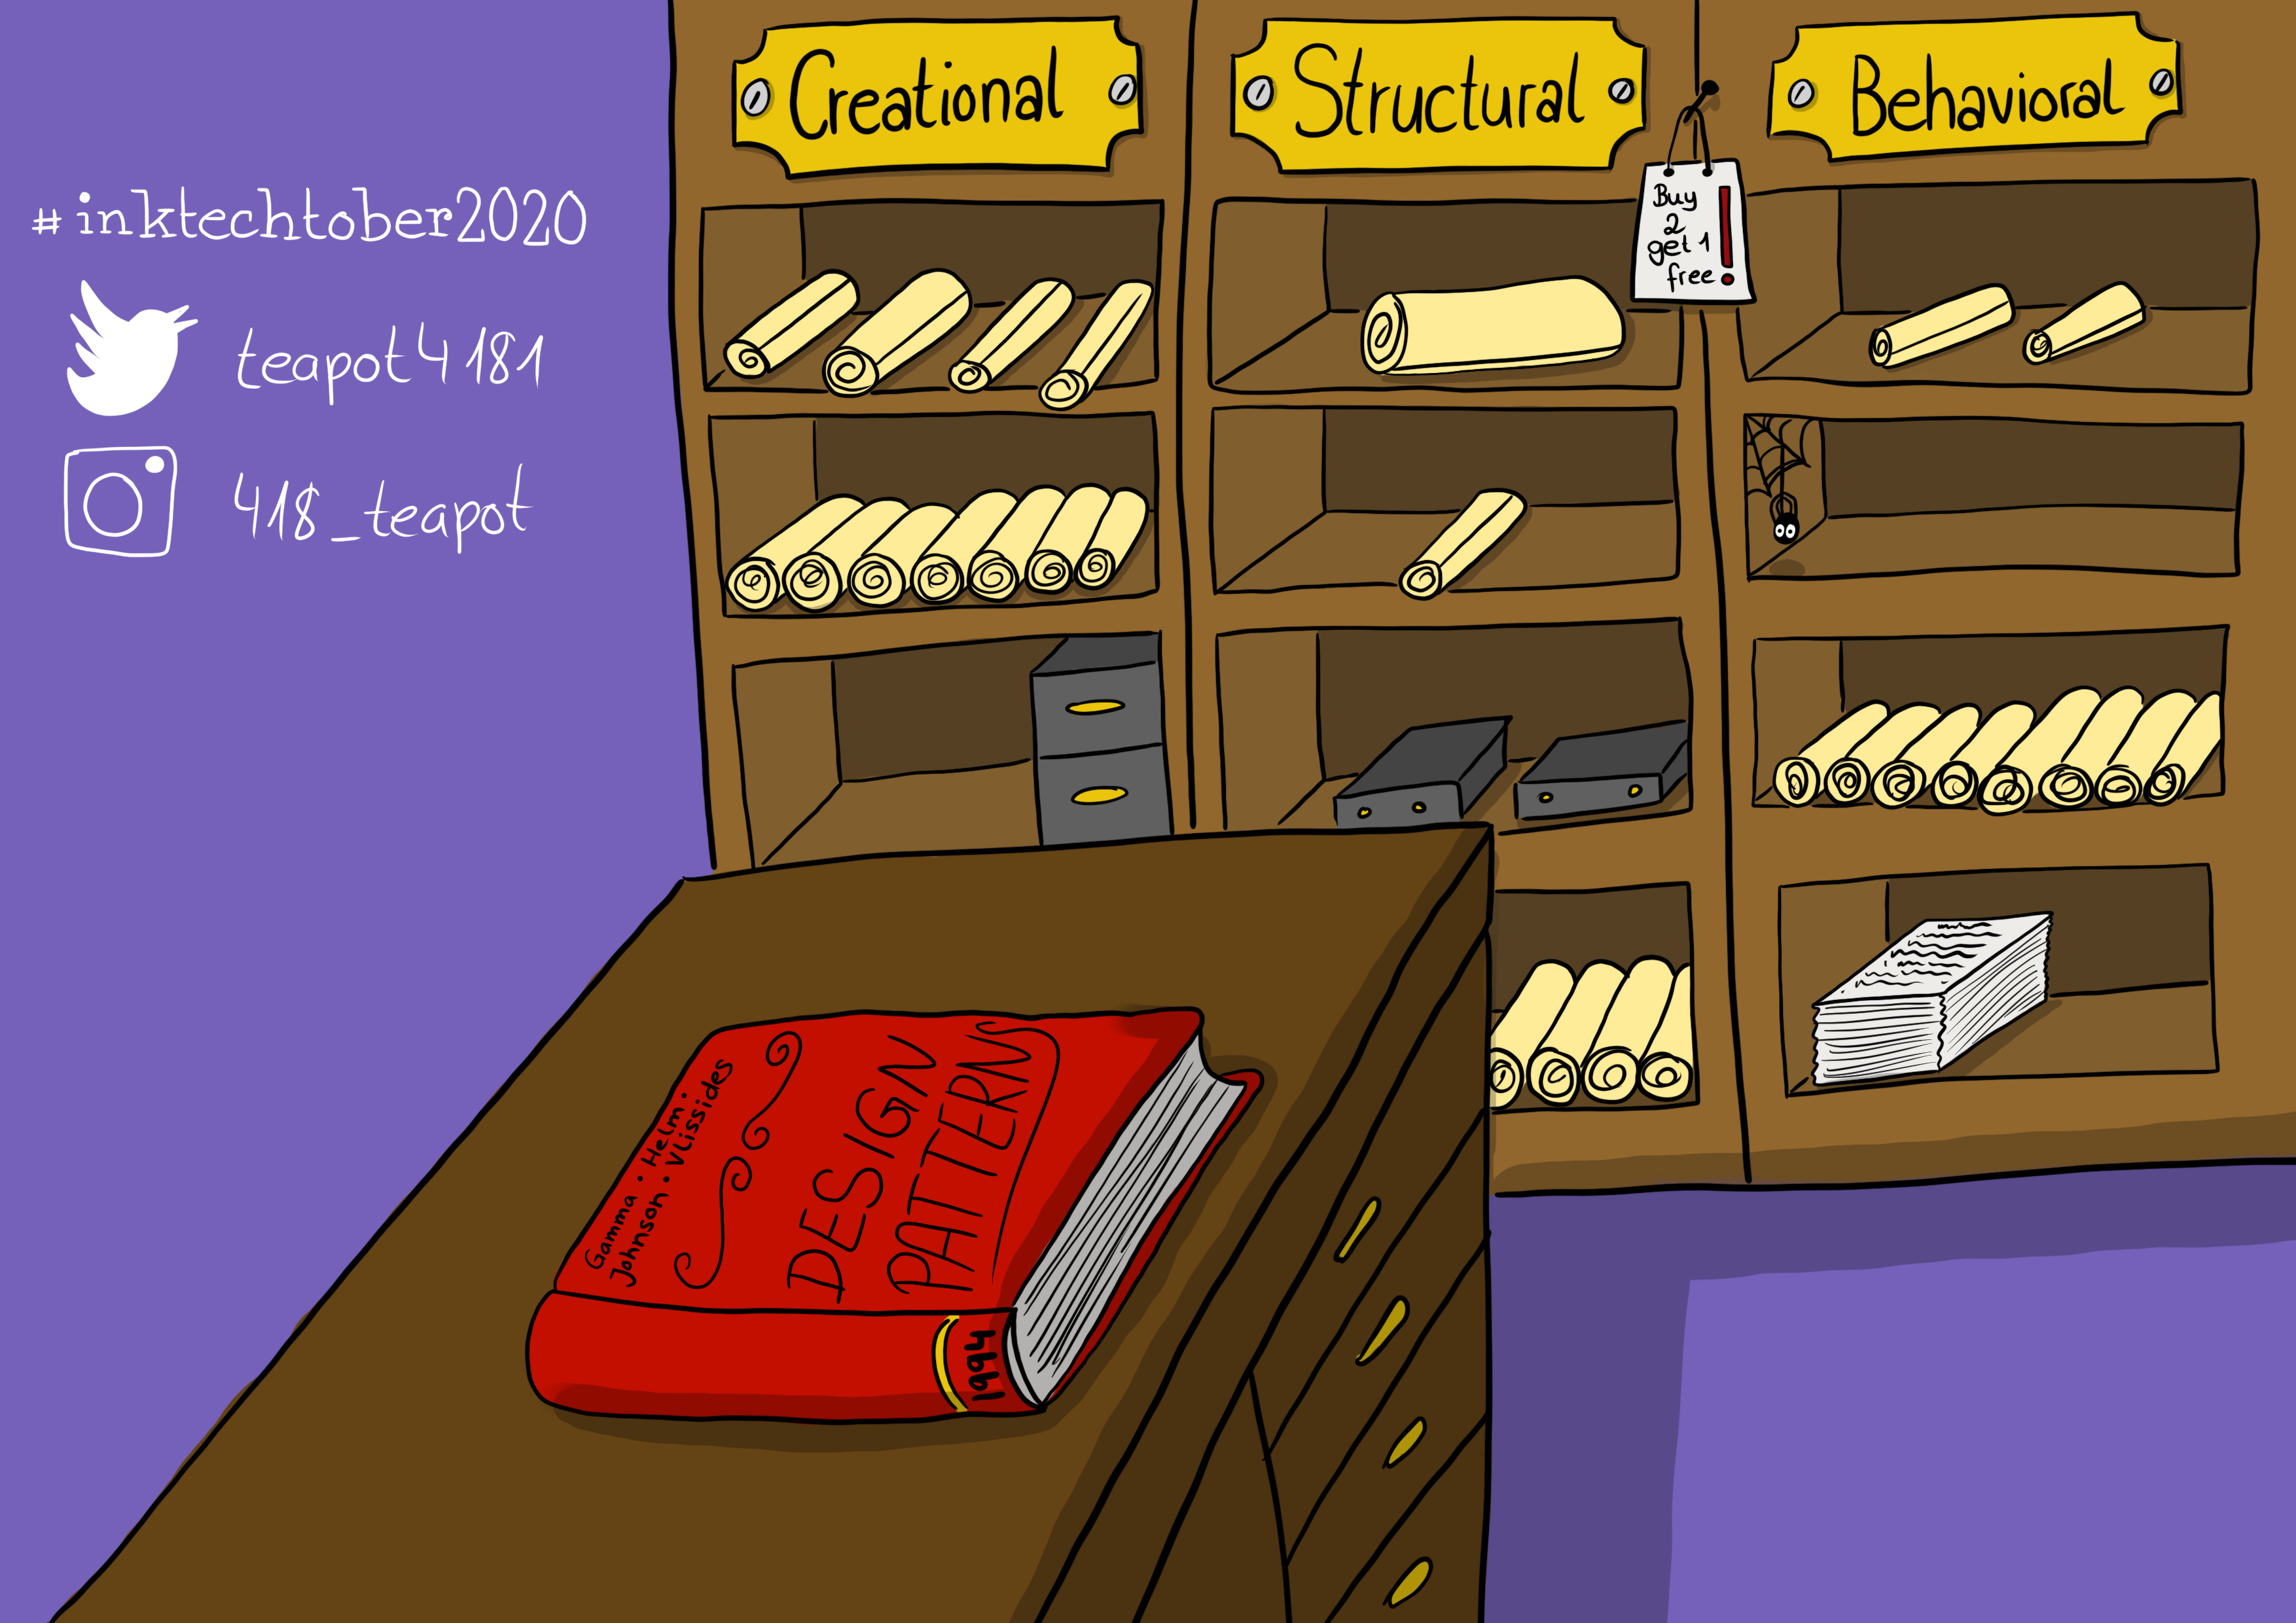 #inktechtober2020
teapot4181
418_teapot
Creational
Structural
Behavioral
Buy
2
get 1
free!
Gamma · Helm ·
Johnson · Vlissides
DESIGN
PATTERNS
1994